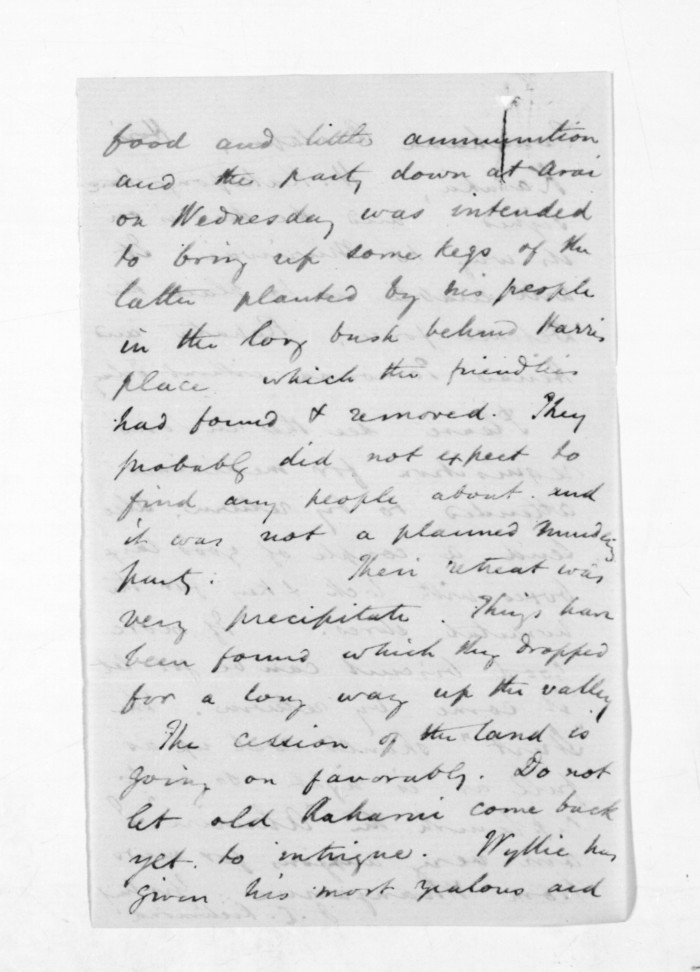 food and little ammunition
and the party down at Arai
on Wednesday was intended
to bring up some kegs of the
latter planted by his people
in the long bush behind Harris
place which the friendlies
had found & removed. They
probably did not expect to
find any people about and
it was not a planned murdering
party. Their retreat was
very precipitate. Things have
been found which they dropped
for a long way up the valley
The cession of the land is
going on favorably. Do not
let old Rakaroi come back
yet to intrigue. Wyllie has
given his most zealous aid